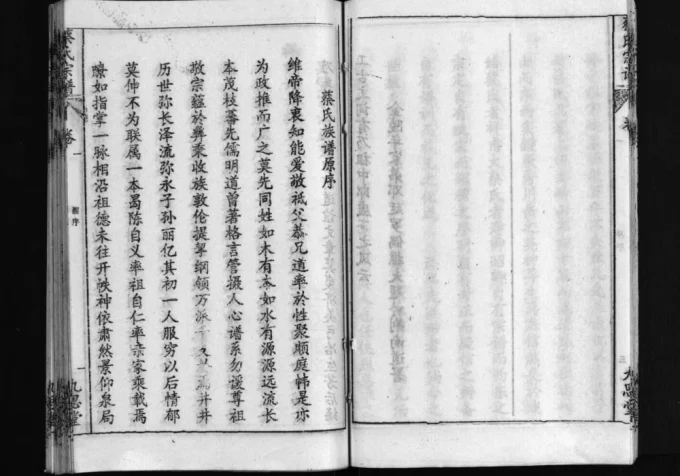 蔡氏族谱原序
维帝降衷知能爱敬祗父恭兄道率於性聚顺庭帏是亦
为政推而广之莫先同姓如木有本如水有源源远流长
本茂枝蕃先儒明道曾著格言管摄人心谱系勿谖尊祖
敬宗蕴於彝乘收族敦伦提挈纲领万派千 井井
历世弥长泽流弥永子孙丽亿其初一人服穷以后情郁
莫伸不为联属一本蜀陈自义率祖自仁率亲家乘载焉
瞭如指掌一脉相沿祖德未往开帙神依肃然景仰泉局
蔡氏宗谱
卷一
原序
一
九思堂
蔡氏宗谱
卷
三
九思堂